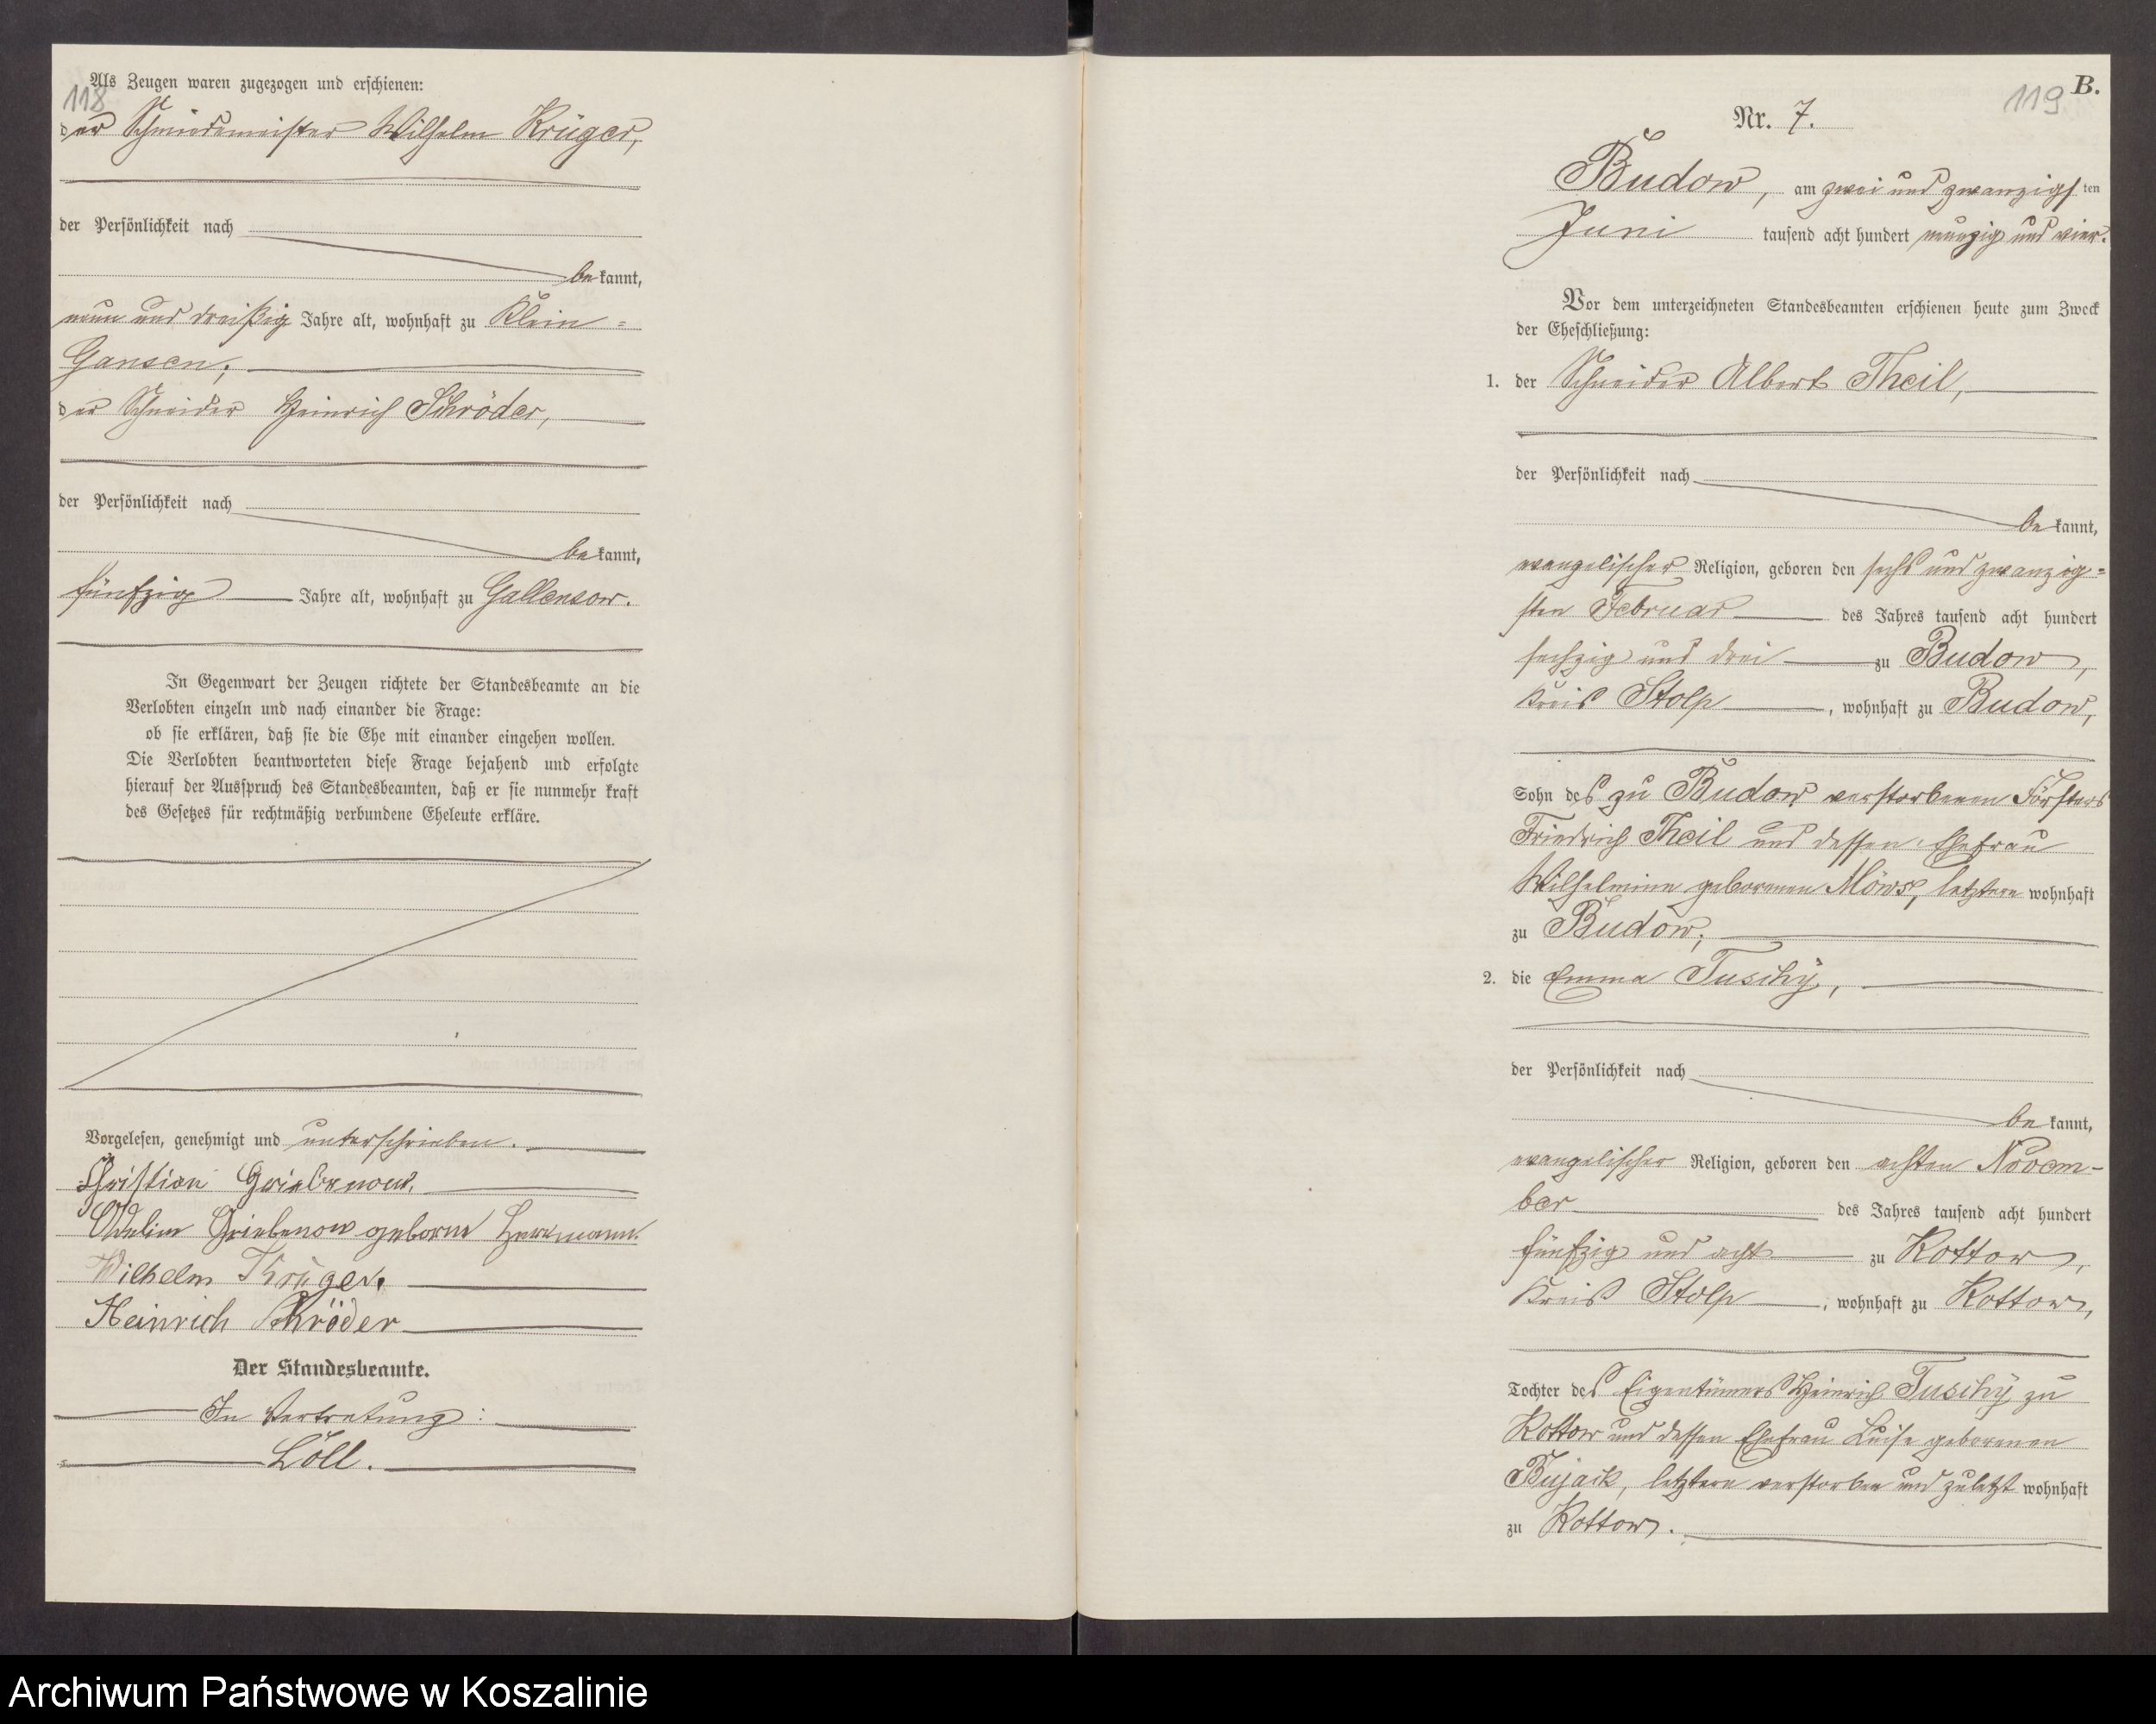 Als Zeugen waren zugezogen und erschienen:
118
der Schmiedemeister Wilhelm Krüger,
der Persönlichkeit nach
bekannt,
neun und dreißig Jahre alt, wohnhaft zu Klein=
Gansen;
der Schneider Heinrich Schröder,
der Persönlichkeit nach
bekannt,
fünfzig Jahre alt, wohnhaft zu Gallensow.
In Gegenwart der Zeugen richtete der Standesbeamte an die
Verlobten einzeln und nach einander die Frage:
ob sie erklären, daß sie die Ehe mit einander eingehen wollen.
Die Verlobten beantworteten diese Frage bejahend und erfolgte
hierauf der Ausspruch des Standesbeamten, daß er sie nunmehr kraft
des Gesetzes für rechtmäßig verbundene Eheleute erkläre.
Vorgelesen, genehmigt und unterschrieben.
Christian Griebenow.
Griebenow geborne Herrmann.
Wilhelm Krüger.
Heinrich Schröder
Der Standesbeamte.
In Vertretung:
Löll.
B.
119
Nr. 7.
Budow, am zwei und zwanzigsten
Juni tausend acht hundert neunzig und vier.
Vor dem unterzeichneten Standesbeamten erschienen heute zum Zweck
der Eheschließung:
1. der Schneider Albert Theil,
der Persönlichkeit nach
bekannt,
evangelischer Religion, geboren den sechs und zwanzig=
sten Februar des Jahres tausend acht hundert
sechzig und drei zu Budow,
Kreis Stolp, wohnhaft zu Budow,
Sohn des zu Budow verstorbenen Försters
Friedrich Theil und dessen Ehefrau
Wilhelmine geborenen Möws, letztere wohnhaft
zu Budow;
2. die Emma Tuschy,
der Persönlichkeit nach
bekannt,
evangelischer Religion, geboren den achten Novem-
ber des Jahres tausend acht hundert
fünfzig und acht zu Kottow,
Kreis Stolp, wohnhaft zu Kottow,
Tochter des Eigentümers Heinrich Tuschy zu
Kottow und dessen Ehefrau Luise geborenen
Bujack, letztere verstorben und zuletzt wohnhaft
zu Kottow.
Archiwum Państwowe w Koszalinie